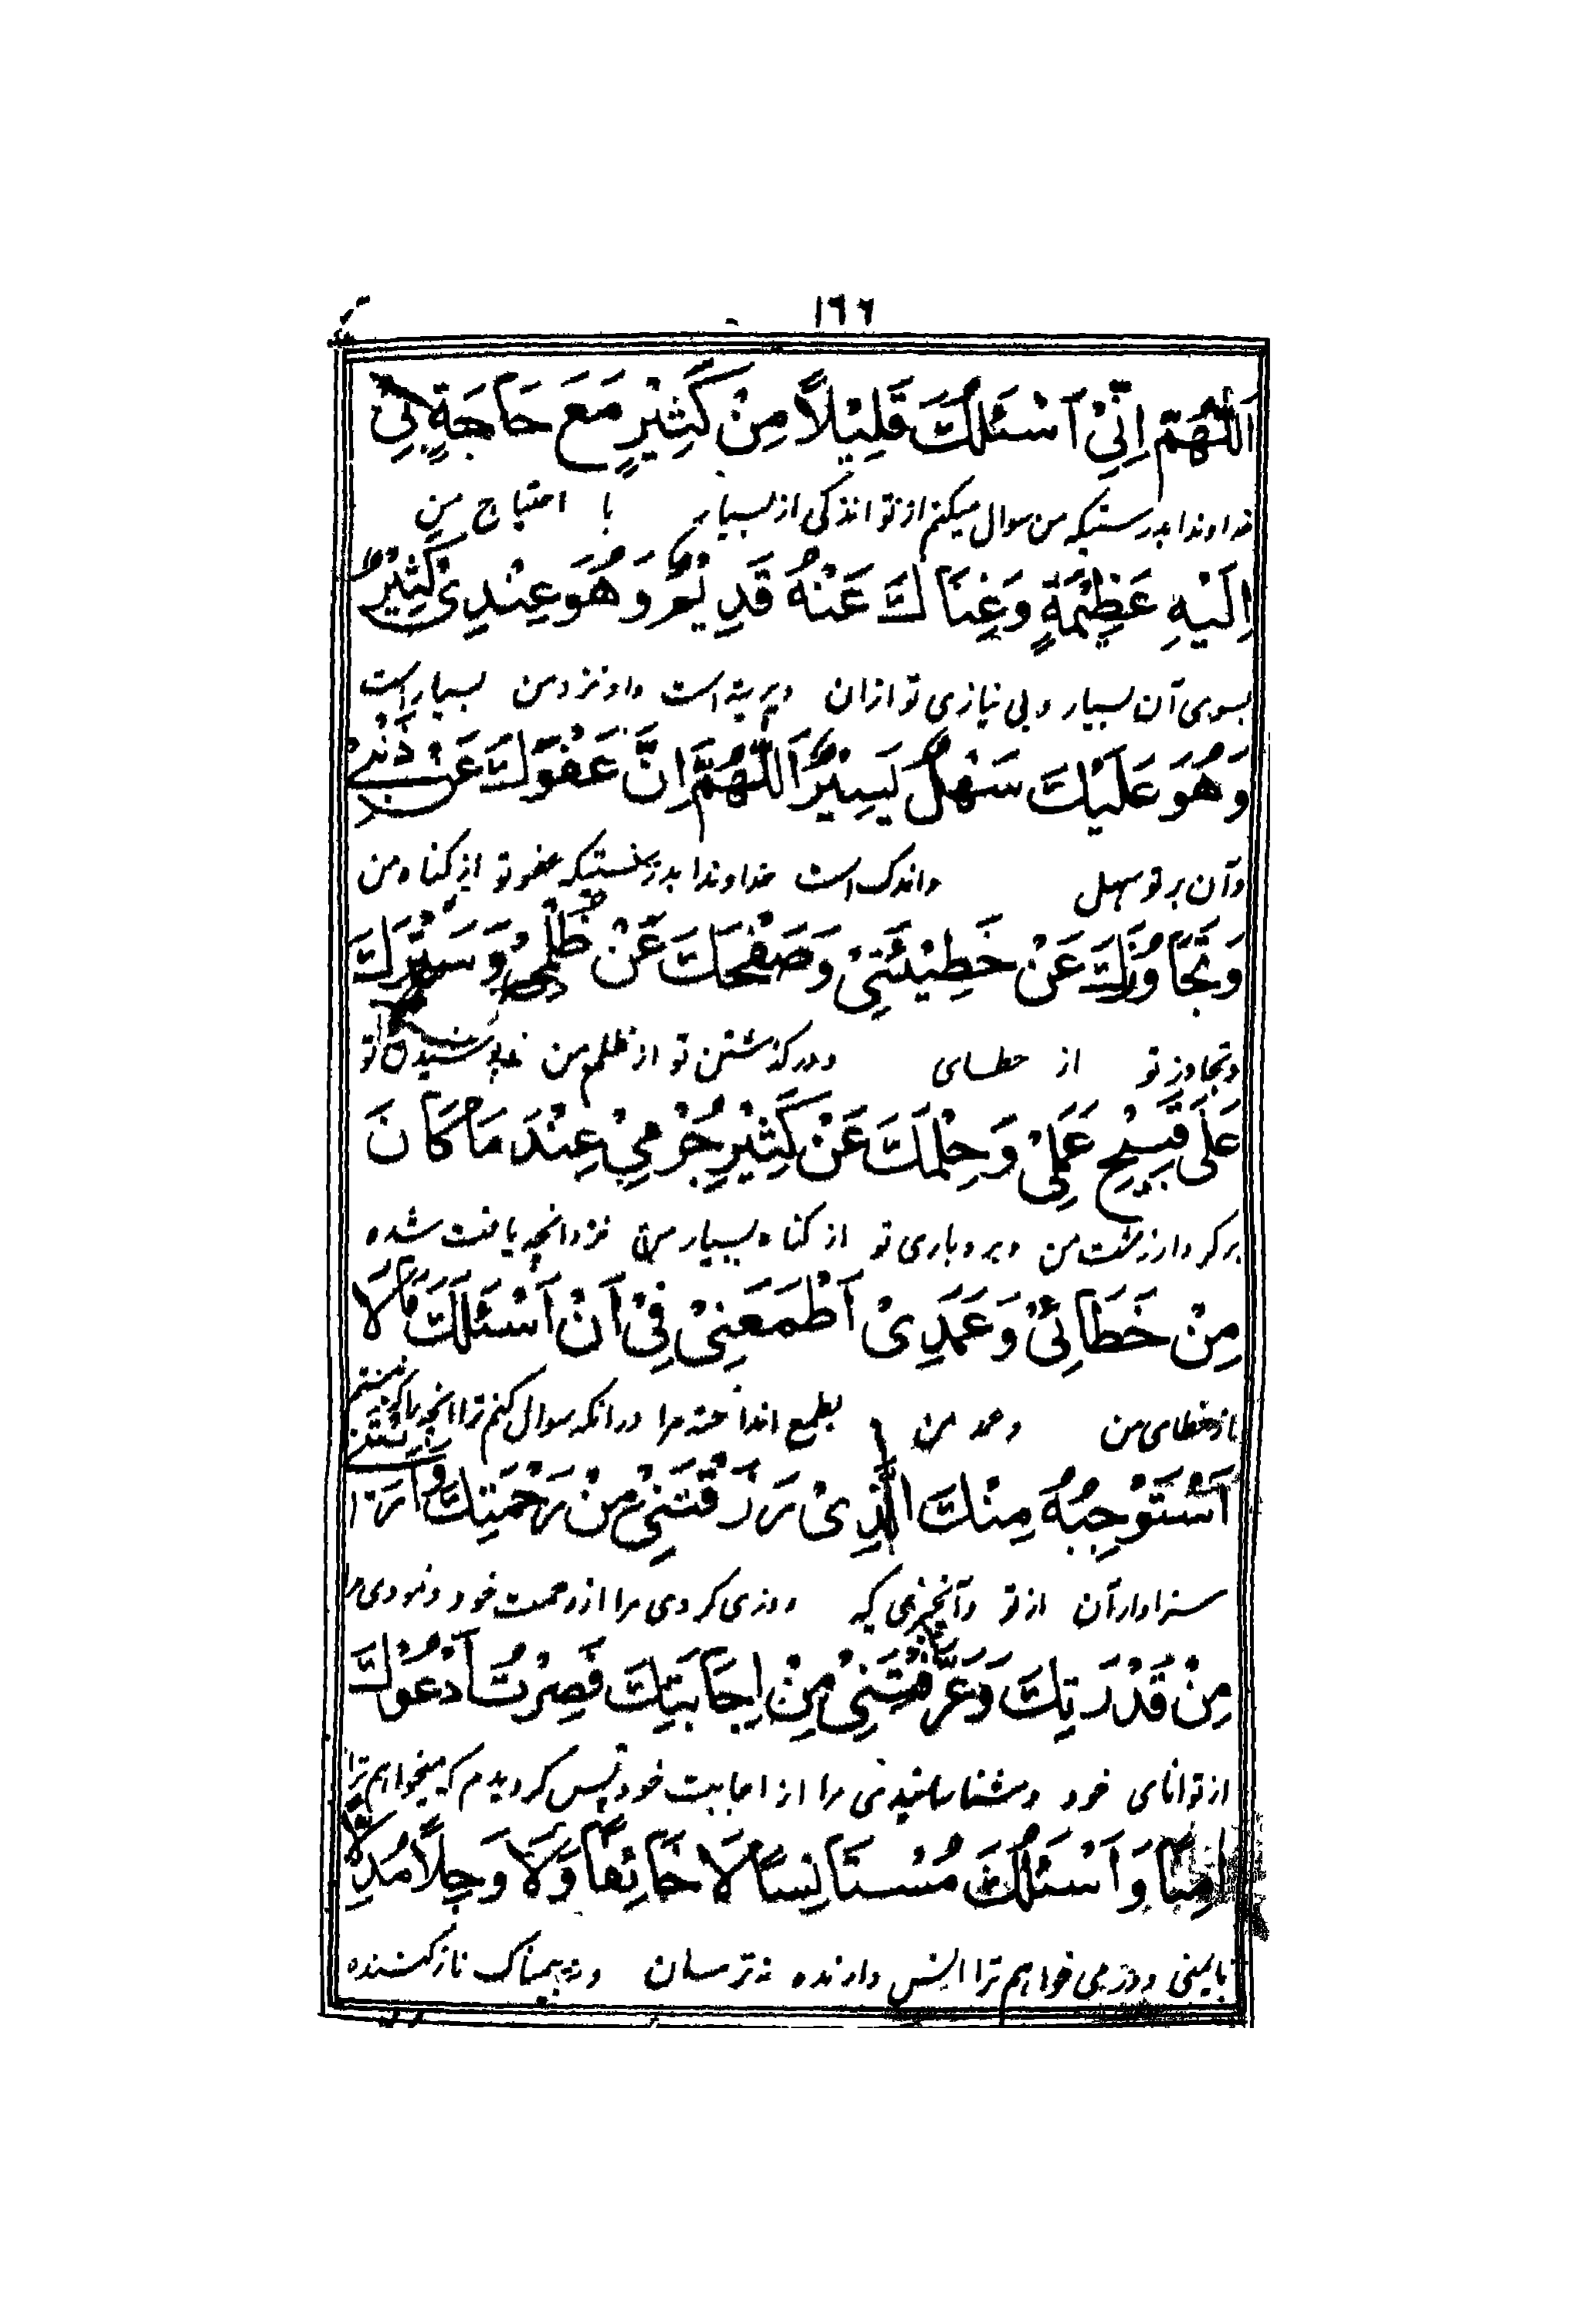 ١٦٦
اَللّٰهُمَّ اِنِّيْ اَسْئَلُكَ قَلِيْلاً مِنْ كَثِيْرٍ مَعَ حَاجَةٍ بِيْ
خداوندا بدرستیکه من سوال میکنم از تو اندکی از بسیار با احتیاج من
اِلَيْهِ عَظِيْمَةٍ وَغِنَاكَ عَنْهُ قَدِيْمٌ وَهُوَ عِنْدِيْ كَثِيْرٌ
بسوی آن بسیار و بی نیازی تو ازان دیرینه است و او نزد من بسیار است
وَهُوَ عَلَيْكَ سَهْلٌ يَسِيْرٌ اَللّٰهُمَّ اِنَّ عَفْوَكَ عَنْ ذَنْبِيْ
و آن بر تو سهل و اندک است خداوندا بدرستیکه عفو تو از کناه من
وَتَجَاوُزَكَ عَنْ خَطِيْئَتِيْ وَصَفْحَكَ عَنْ ظُلْمِيْ وَسَتْرَكَ
و تجاوز تو از خطای و درکذشتن تو از ظلم من تو
عَلٰى قَبِيْحِ عَمَلِيْ وَحِلْمَكَ عَنْ كَثِيْرِ جُرْمِيْ عِنْدَ مَا كَانَ
بر کردار زشت من و بردباری تو از کناه بسیار من نزد انچه یافت شده
مِنْ خَطَائِيْ وَعَمَدِيْ اَطْمَعَنِيْ فِيْ اَنْ اَسْئَلَكَ مَا لَا
از خطای من و عمد من بطمع انداخته مرا در انکه سوال کنم ترا انچه را که نیستم
اَسْتَوْجِبُهُ مِنْكَ الَّذِيْ رَزَقْتَنِيْ مِنْ رَحْمَتِكَ وَاَرَيْتَنِيْ
سزاوار آن از تو و آنچیزی که روزی کردی مرا از رحمت خود و نمودی مرا
مِنْ قَدْرَتِكَ وَعَرَّفْتَنِيْ مِنْ اِجَابَتِكَ فَصِرْتُ اَدْعُوْكَ
از توانای خود و شناسانیدی مرا از اجابت خود پس کردیدم که میخواهم ترا
اٰمِنًا وَاَسْئَلُكَ مُسْتَانِسًا لَا خَائِفًا وَلَا وَجِلًا مُدِلًّا
بایمنی و می خواهم ترا انس دارنده نه ترسان و نه بیمناک ناز کننده